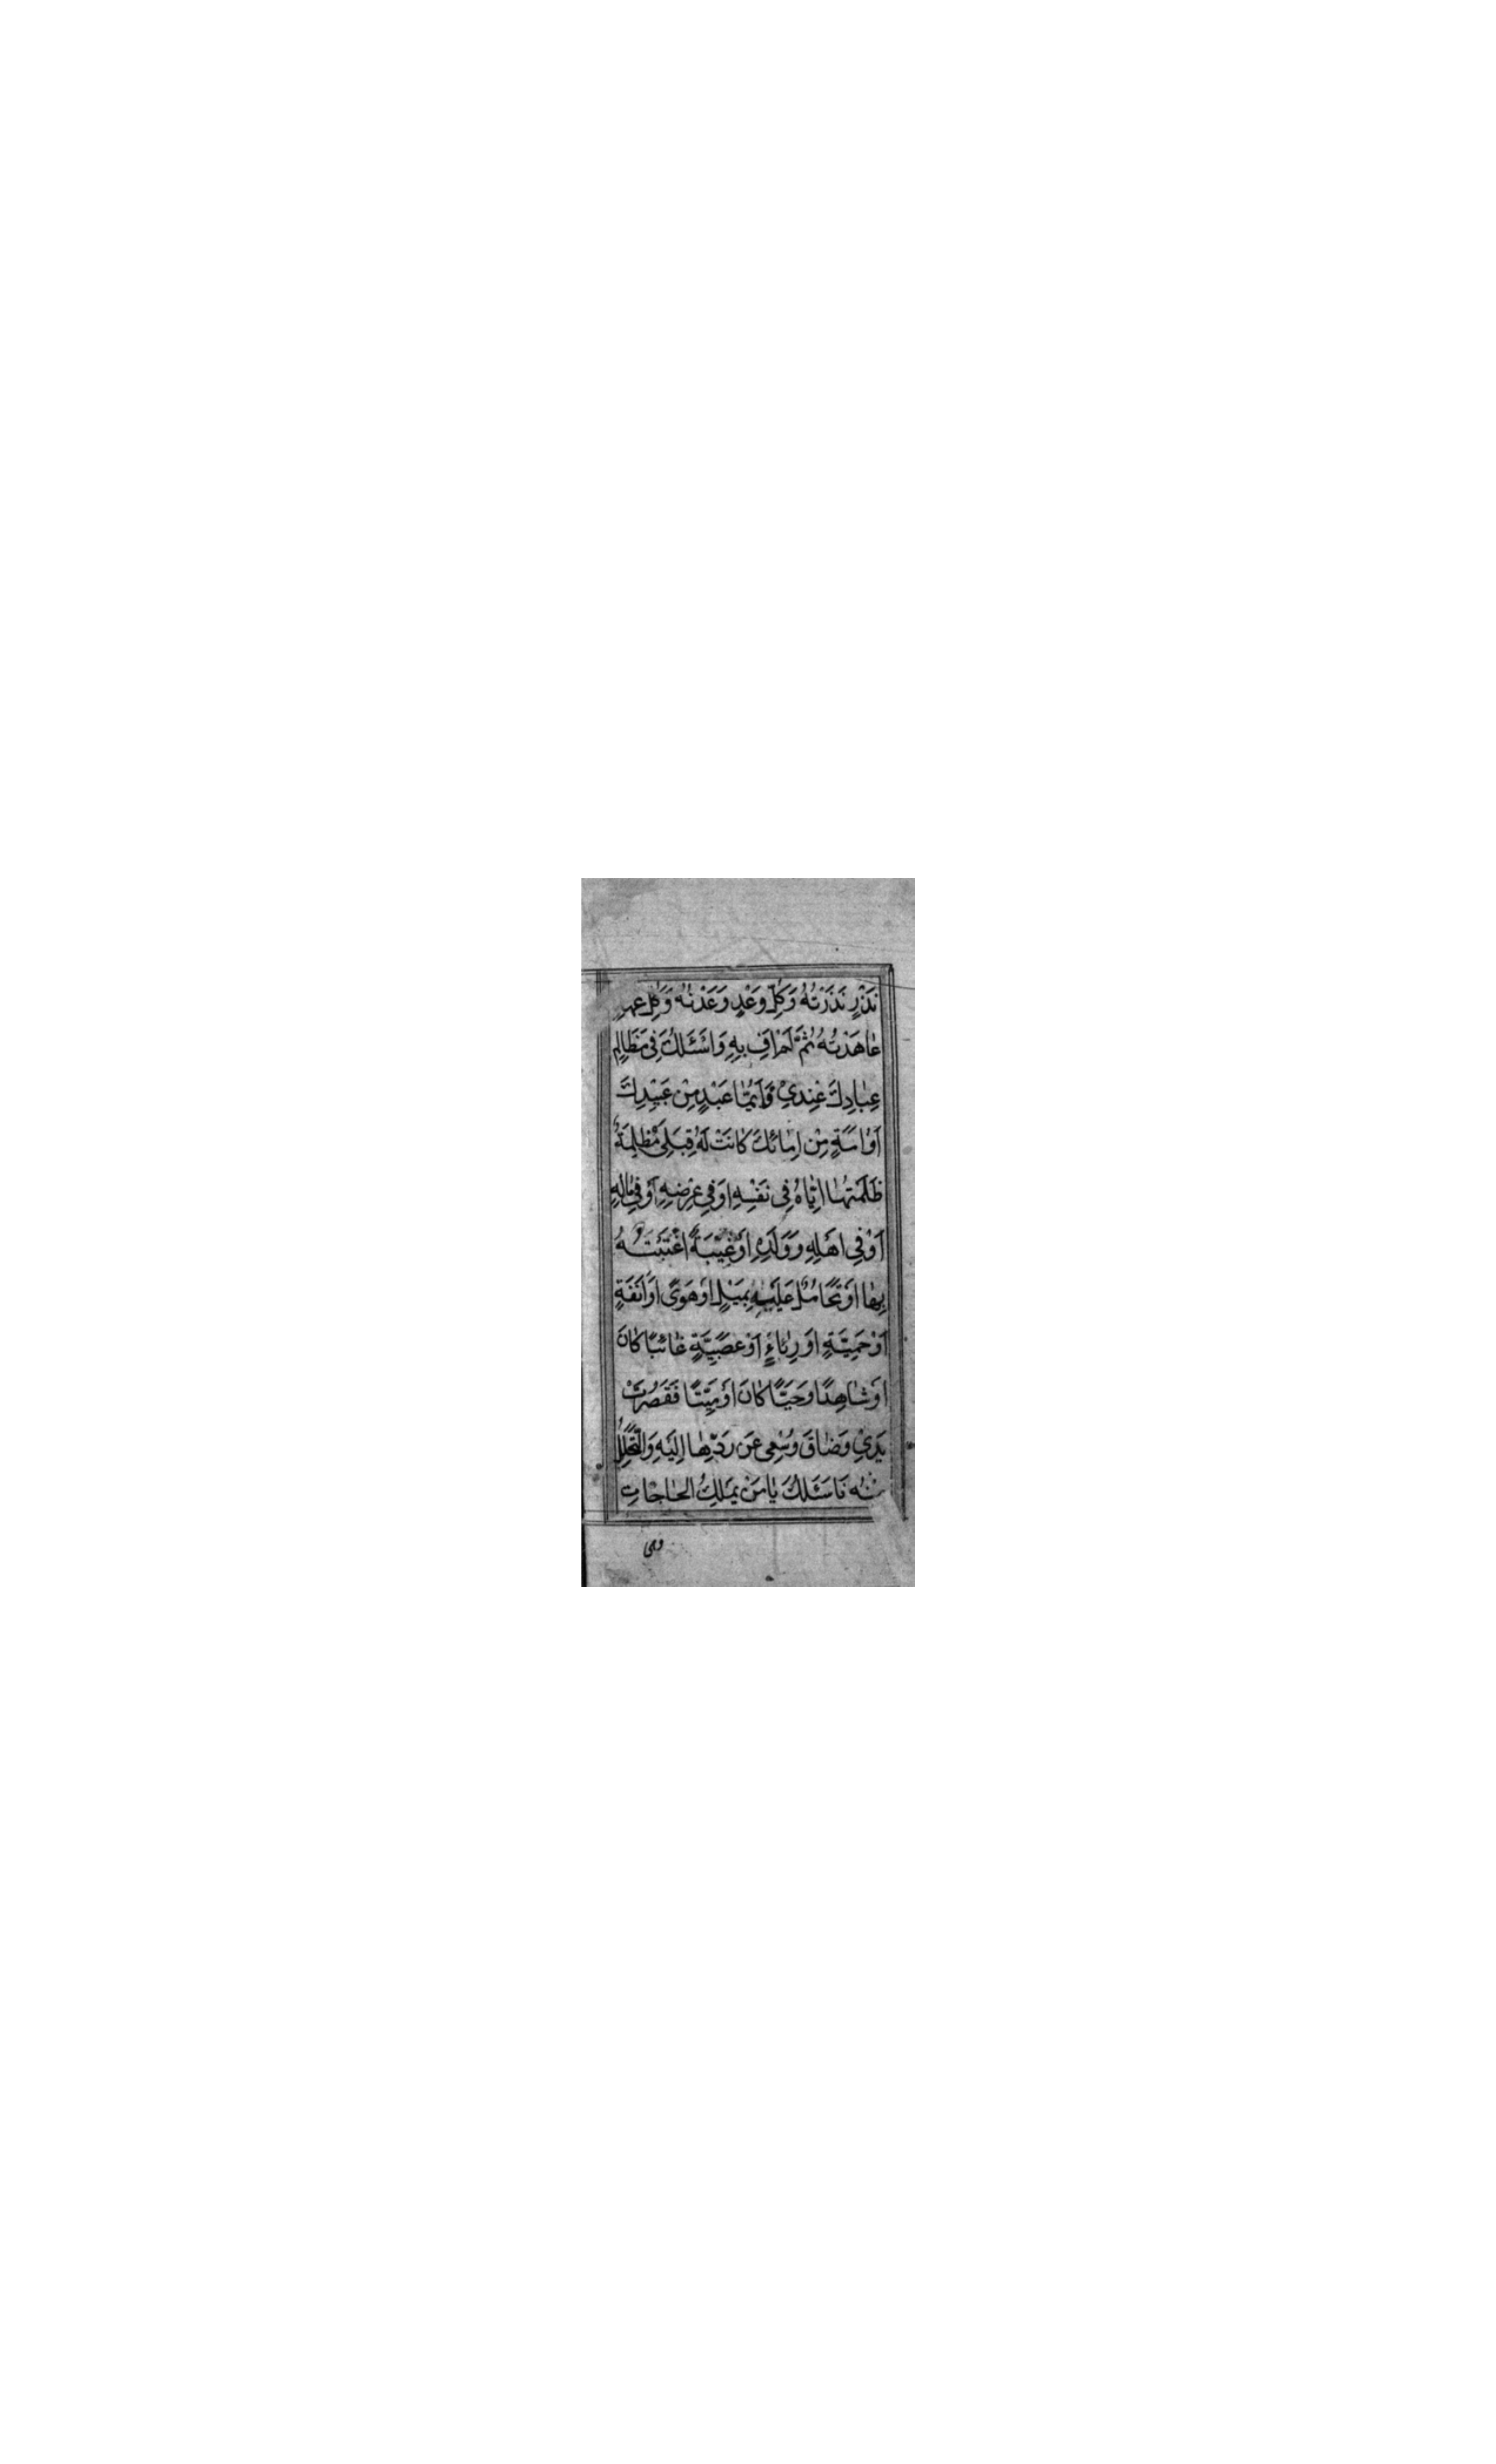 نَذْرٍ نَذَرْتُهُ وَكُلِّ وَعْدٍ وَعَدْتُهُ وَكُلِّ عَهْدٍ
عَاهَدْتُهُ ثُمَّ لَمْ اَفِ بِهِ وَاَسْئَلُكَ فِي مَظَالِمِ
عِبَادِكَ عِنْدِي فَاَيُّمَا عَبْدٍ مِنْ عَبِيْدِكَ
اَوْ اَمَةٍ مِنْ اِمَائِكَ كَانَتْ لَهُ قِبَلِي مَظْلِمَةٌ
ظَلَمْتُهَا اِيَّاهُ فِي نَفْسِهِ اَوْ فِي عِرْضِهِ اَوْ فِي مَالِهِ
اَوْ فِي اَهْلِهِ وَوَلَدِهِ اَوْ غِيْبَةٌ اغْتَبْتُهُ
بِهَا اَوْ تَحَامُلٌ عَلَيْهِ بِمَيْلٍ اَوْ هَوًى اَوْ اَنَفَةٍ
اَوْ حَمِيَّةٍ اَوْ رِيَاءٍ اَوْ عَصَبِيَّةٍ غَائِبًا كَانَ
اَوْ شَاهِدًا وَحَيًّا كَانَ اَوْ مَيِّتًا فَقَصُرَتْ
يَدِيْ وَضَاقَ وُسْعِي عَنْ رَدِّهَا اِلَيْهِ وَالتَّحَلُّلِ
مِنْهُ فَاَسْئَلُكَ يَا مَنْ يَمْلِكُ الْحَاجَاتِ
وهى